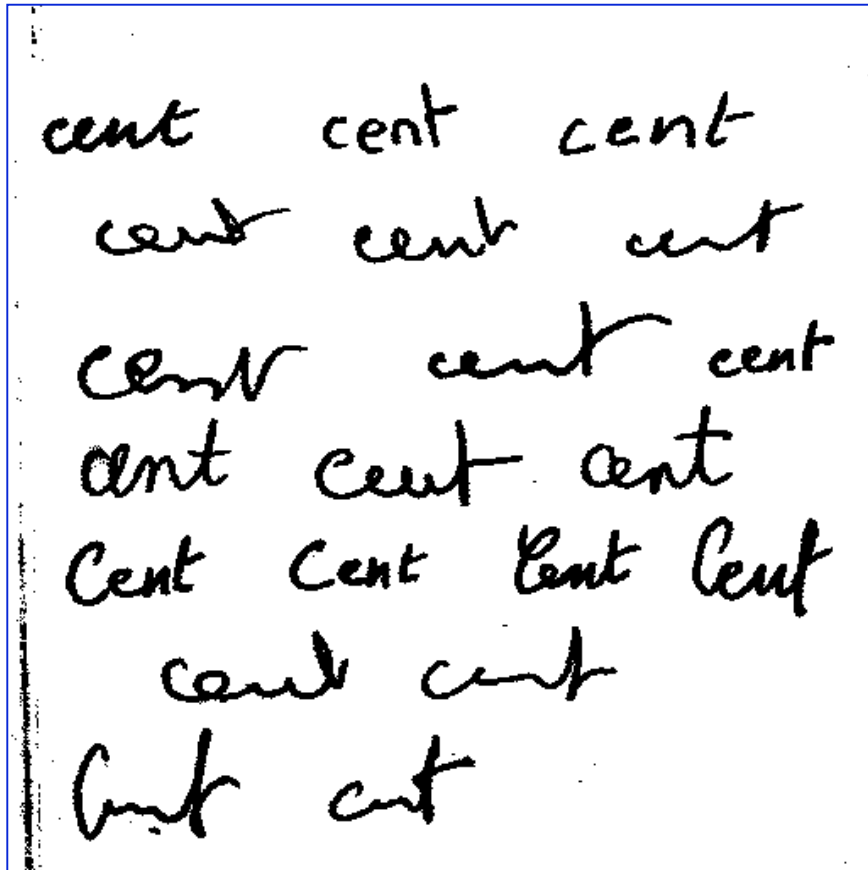 cent cent cent
cent cent cent
cent cent cent
cent cent cent
Cent Cent Cent Cent
cent cent
Cent cent